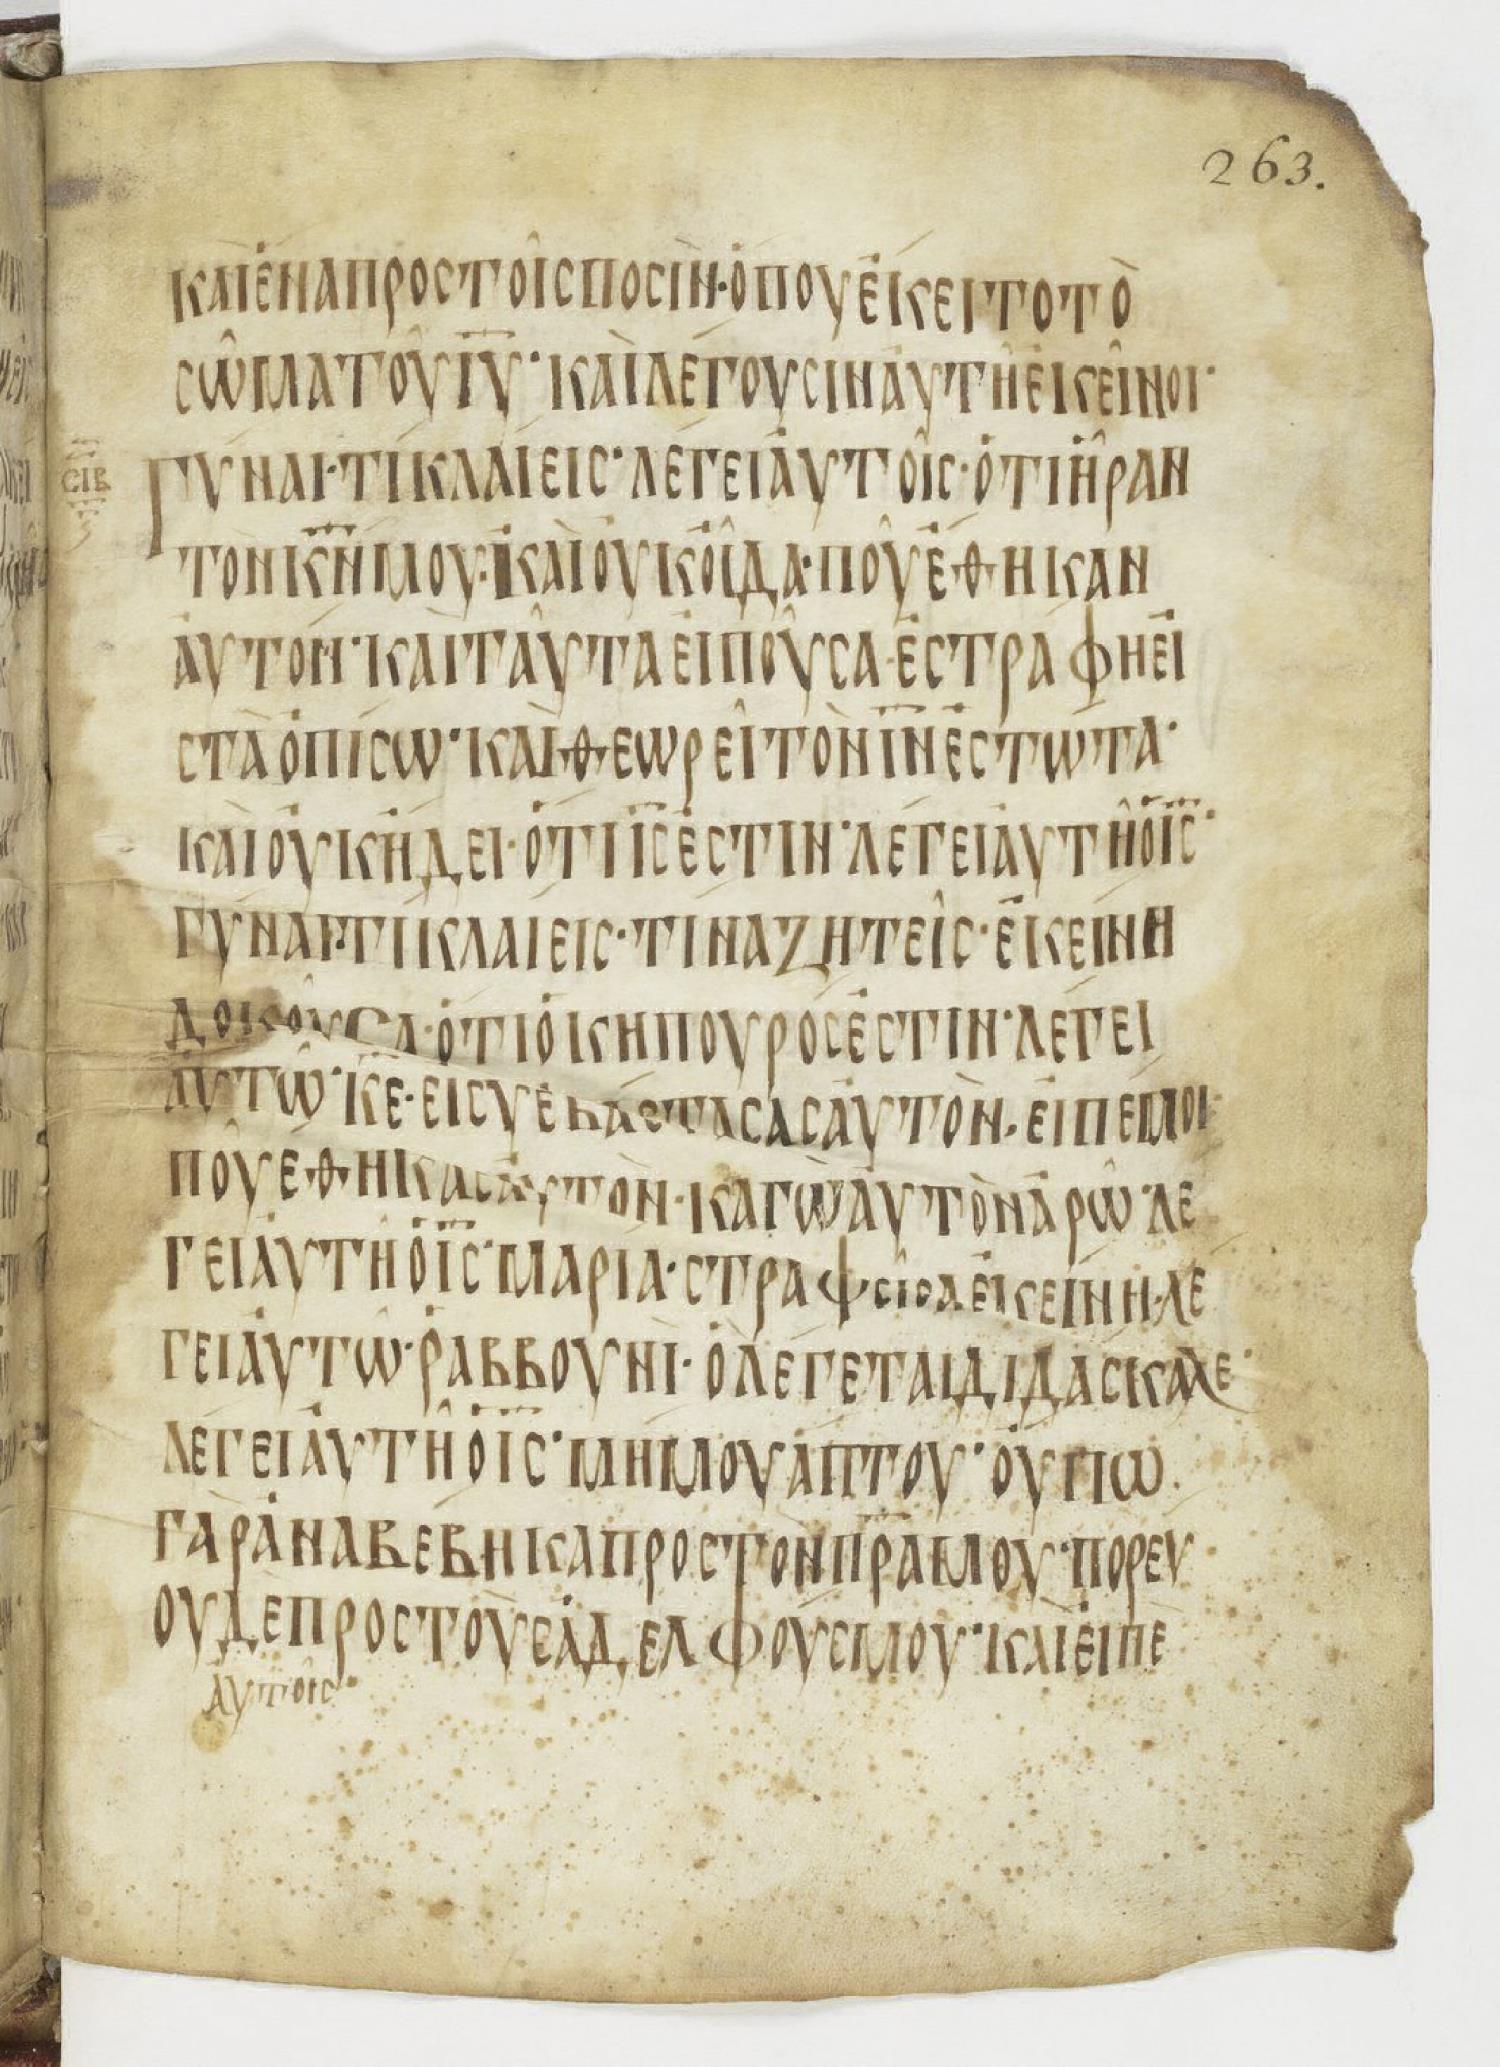 263.
ΚΑΙ ΕΝΑ ΠΡΟΣ ΤΟΙΣ ΠΟΣΙΝ· ΟΠΟΥ ΕΚΕΙΤΟ ΤΟ
ΣΩΜΑ ΤΟΥ ΙΥ· ΚΑΙ ΛΕΓΟΥΣΙΝ ΑΥΤΗ ΕΚΕΙΝΟΙ·
ΣΙΒ
ΓΥΝΑΙ· ΤΙ ΚΛΑΙΕΙΣ· ΛΕΓΕΙ ΑΥΤΟΙΣ· ΟΤΙ ΗΡΑΝ
ΤΟΝ ΚΝ ΜΟΥ· ΚΑΙ ΟΥΚ ΟΙΔΑ· ΠΟΥ ΕΘΗΚΑΝ
ΑΥΤΟΝ· ΚΑΙ ΤΑΥΤΑ ΕΙΠΟΥΣΑ· ΕΣΤΡΑΦΗ ΕΙ
Σ ΤΑ ΟΠΙΣΩ· ΚΑΙ ΘΕΩΡΕΙ ΤΟΝ ΙΝ ΕΣΤΩΤΑ·
ΚΑΙ ΟΥΚ ΗΔΕΙ· ΟΤΙ ΙΣ ΕΣΤΙΝ· ΛΕΓΕΙ ΑΥΤΗ Ο ΙΣ·
ΓΥΝΑΙ· ΤΙ ΚΛΑΙΕΙΣ· ΤΙΝΑ ΖΗΤΕΙΣ· ΕΚΕΙΝΗ
ΔΟΚΟΥΣΑ· ΟΤΙ Ο ΚΗΠΟΥΡΟΣ ΕΣΤΙΝ· ΛΕΓΕΙ
ΑΥΤΩ· ΚΕ· ΕΙ ΣΥ ΕΒΑΣΤΑΣΑΣ ΑΥΤΟΝ· ΕΙΠΕ ΜΟΙ
ΠΟΥ ΕΘΗΚΑΣ ΑΥΤΟΝ· ΚΑΓΩ ΑΥΤΟΝ ΑΡΩ· ΛΕ
ΓΕΙ ΑΥΤΗ Ο ΙΣ· ΜΑΡΙΑ· ΣΤΡΑΦΕΙΣΑ ΕΚΕΙΝΗ· ΛΕ
ΓΕΙ ΑΥΤΩ· ΡΑΒΒΟΥΝΙ· Ο ΛΕΓΕΤΑΙ ΔΙΔΑΣΚΑΛΕ·
ΛΕΓΕΙ ΑΥΤΗ Ο ΙΣ· ΜΗ ΜΟΥ ΑΠΤΟΥ· ΟΥΠΩ
ΓΑΡ ΑΝΑΒΕΒΗΚΑ ΠΡΟΣ ΤΟΝ ΠΡΑ ΜΟΥ· ΠΟΡΕΥ
ΟΥ ΔΕ ΠΡΟΣ ΤΟΥΣ ΑΔΕΛΦΟΥΣ ΜΟΥ· ΚΑΙ ΕΙΠΕ
ΑΥΤΟΙΣ·